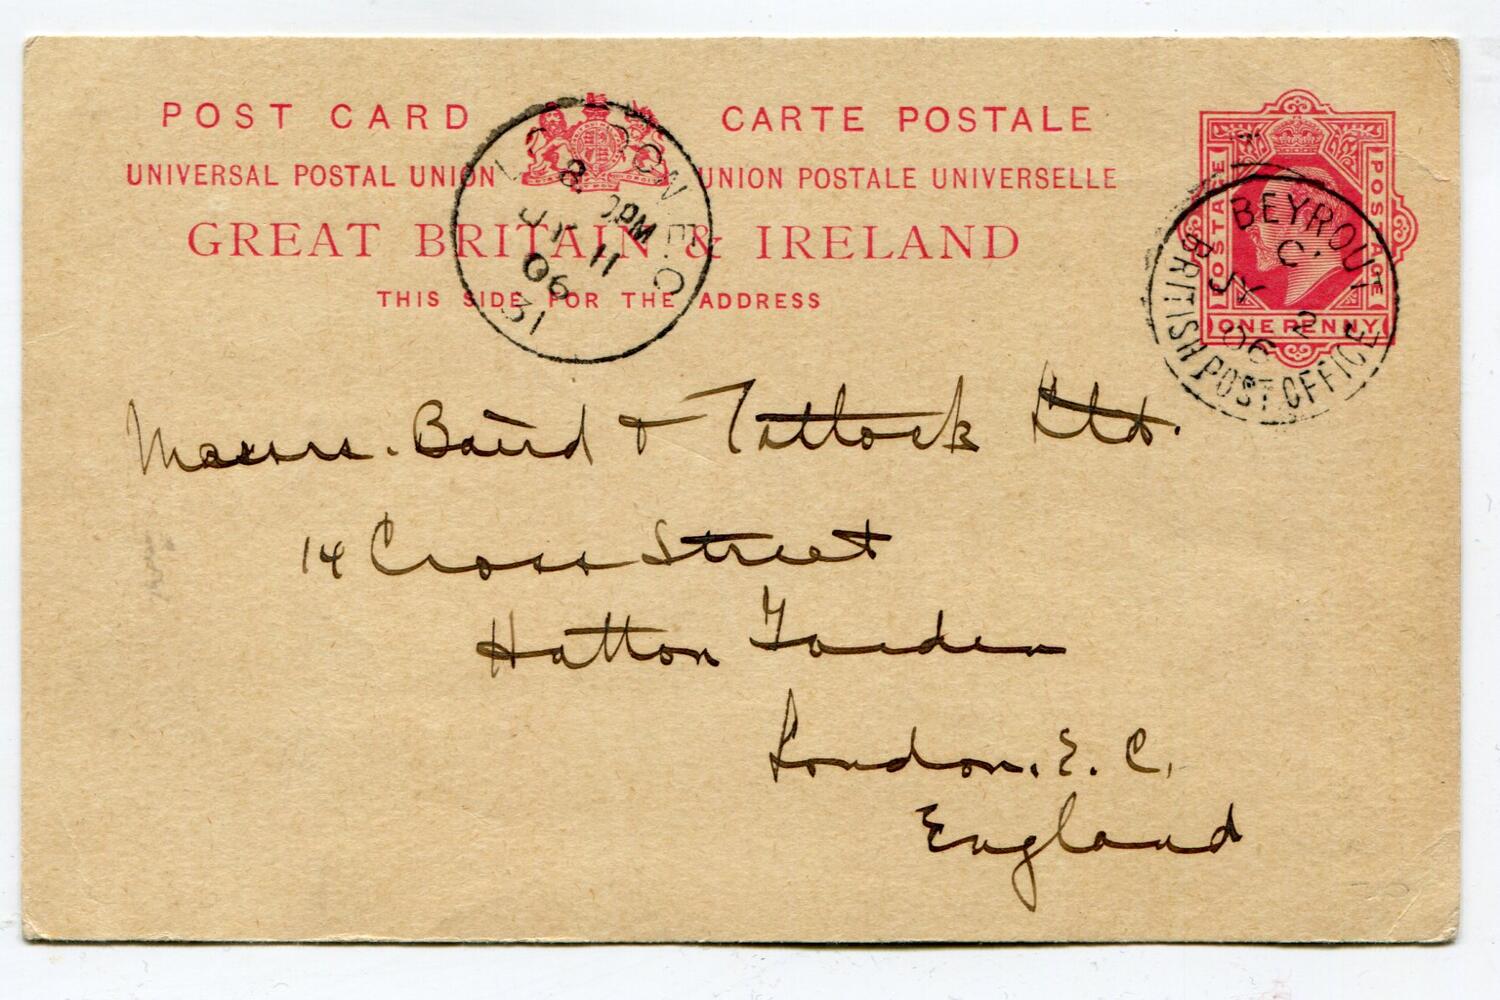 POST CARD CARTE POSTALE
UNIVERSAL POSTAL UNION UNION POSTALE UNIVERSELLE
GREAT BRITAIN & IRELAND
THIS SIDE FOR THE ADDRESS
LONDON E.C
8 PM
JY 11
06
31
POSTAGE POSTAGE
ONE PENNY
BEYROUT
C
JY 2
06
BRITISH POST OFFICE
Messrs. Baird & Tatlock Ltd.
14 Cross Street
Hatton Garden
London. E. C.
England